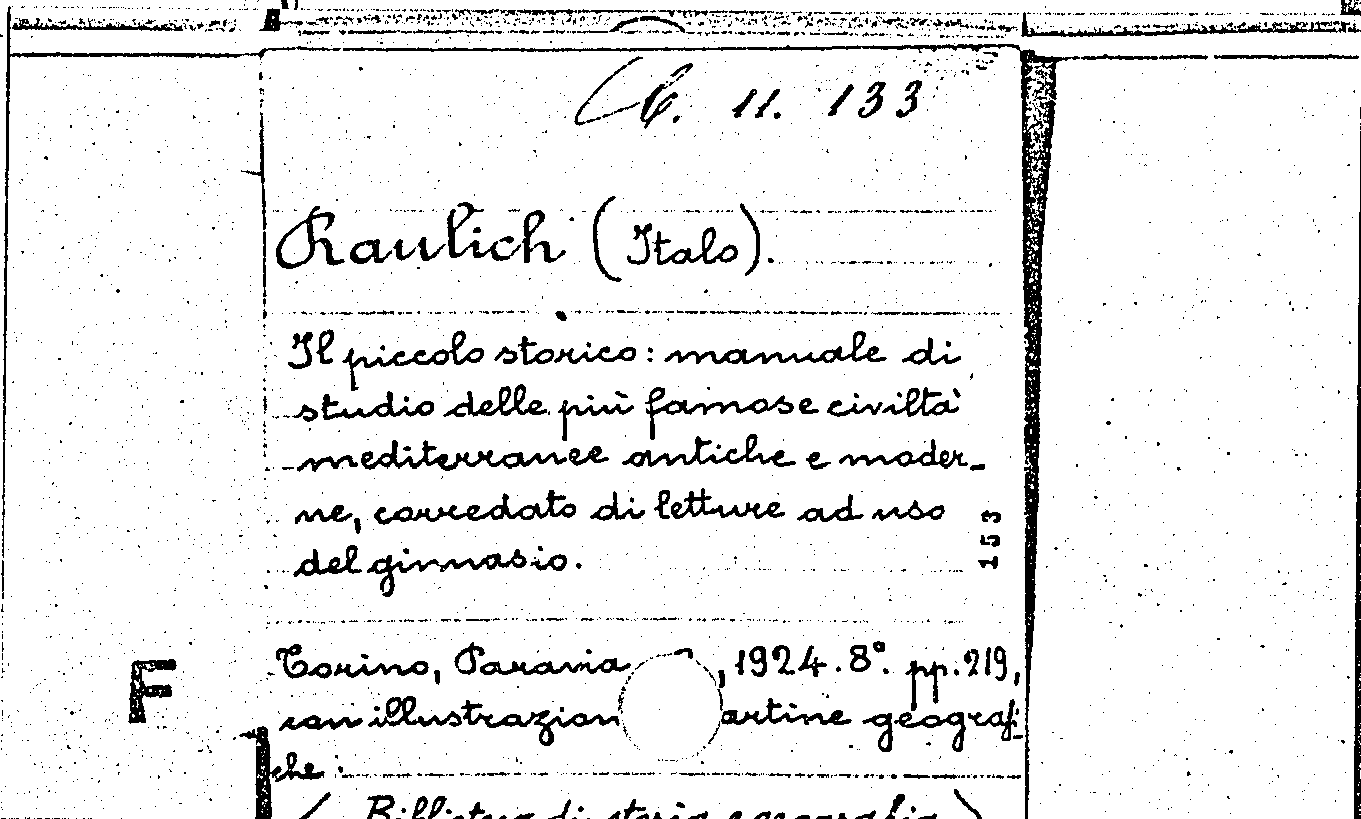 C. 11. 133
Raulich (Italo).
Il piccolo storico: manuale di
studio delle più famose civiltà
mediterranee antiche e moder-
ne, corredato di letture ad uso
del ginnasio.
153
F
Torino, Paravia , 1924. 8°. pp. 219,
con illustrazion artine geografi-
che.
(Biblioteca di storia e geografia)